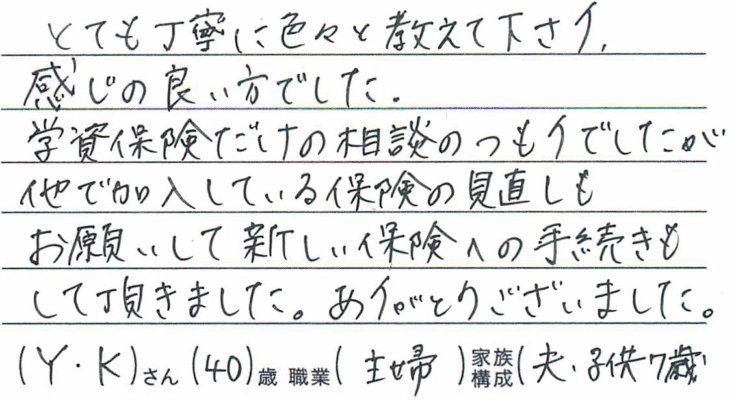 とても丁寧に色々と教えて下さり、
感じの良い方でした。
学資保険だけの相談のつもりでしたが
他で加入している保険の見直しも
お願いして新しい保険への手続きも
して頂きました。ありがとうございました。
(Y・K)さん (40)歳 職業(主婦)家族構成(夫・子供7歳